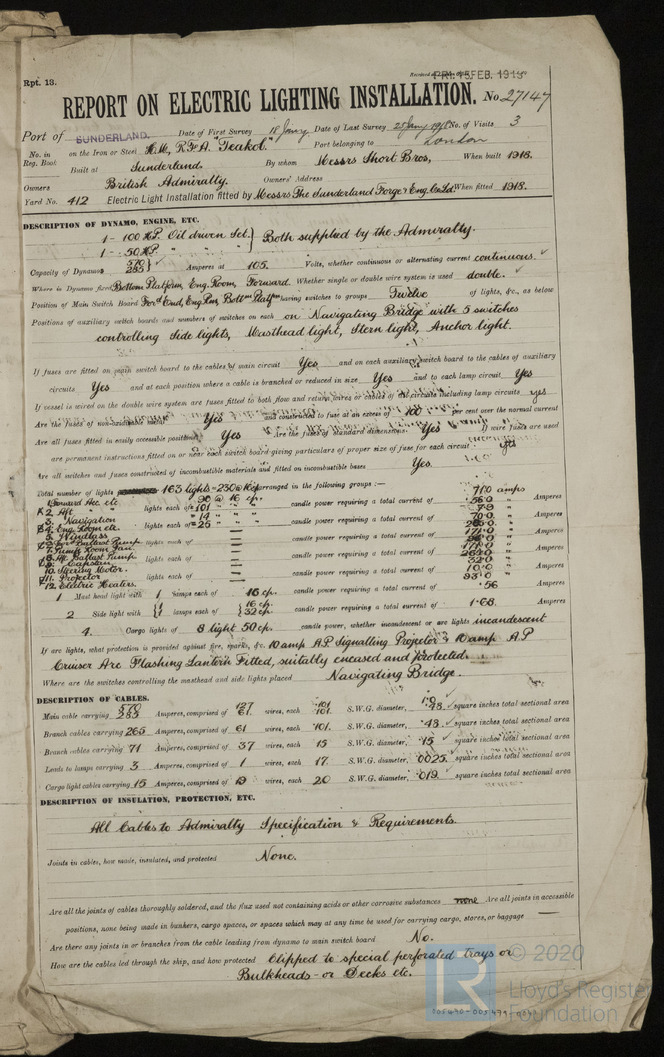 Rpt. 13.
FRI. 15 FEB. 1918
REPORT ON ELECTRIC LIGHTING INSTALLATION. No 27147
Port of SUNDERLAND. Date of First Survey 18 Jany Date of Last Survey 25 Jany 1918 No. of Visits 3
No. in Reg. Book on the Iron or Steel H.M., R.F.A. "Teakol" Port belonging to London
Built at Sunderland By whom Messrs Short Bros, When built 1918.
Owners British Admiralty. Owners' Address
Yard No. 412 Electric Light Installation fitted by Messrs The Sunderland Forge & Eng. Co. Ld. When fitted 1918.
DESCRIPTION OF DYNAMO, ENGINE, ETC.
1 - 100 H.P. Oil driven Set. } Both supplied by the Admiralty.
1 - 50 H.P. "
Capacity of Dynamos 570 285 Amperes at 105 Volts, whether continuous or alternating current continuous.
Where is Dynamo fixed Bottom Platform, Eng. Room, Forward. Whether single or double wire system is used double.
Position of Main Switch Board For'd End, Eng Rm, Bottm Platfm having switches to groups Twelve of lights, &c., as below
Positions of auxiliary switch boards and numbers of switches on each on Navigating Bridge with 5 switches
controlling Side lights, Masthead light, Stern light, Anchor light.
If fuses are fitted on main switch board to the cables of main circuit Yes and on each auxiliary switch board to the cables of auxiliary
circuits Yes and at each position where a cable is branched or reduced in size Yes and to each lamp circuit Yes
If vessel is wired on the double wire system are fuses fitted to both flow and return wires or cables of all circuits including lamp circuits yes
Are the fuses of non-oxidizable metal Yes and constructed to fuse at an excess of 100 per cent over the normal current
Are all fuses fitted in easily accessible positions Yes Are the fuses of standard dimensions Yes If wire fuses are used
are permanent instructions fitted on or near each switch board giving particulars of proper size of fuse for each circuit yes
Are all switches and fuses constructed of incombustible materials and fitted on incombustible bases Yes.
Total number of lights 163 lights - 230 @ 16 cp. arranged in the following groups :—
1. Forward Acc. etc 90 @ 16 cp. 71.0 amps
2. Aft. lights each of 101 " " candle power requiring a total current of 56.0 Amperes
3. Navigation " 14 " " 7.9 "
4. Eng. Room etc. lights each of 25 " " candle power requiring a total current of 70.0 Amperes
5. Windlass
6. For'd Ballast Pump lights each of candle power requiring a total current of 171.0 Amperes
7. Pump Room Fan.
8. Aft Ballast Pump. lights each of candle power requiring a total current of Amperes
9. Capstan 32.0 "
10. Steering Motor. 10.0 "
11. Projector lights each of candle power requiring a total current of 93.0 Amperes
12. Electric Heaters.
1 Mast head light with 1 lamps each of 16 cp. candle power requiring a total current of .56 Amperes
2 Side light with 1 lamps each of { 16 cp. 32 cp. candle power requiring a total current of 1.68 Amperes
4. Cargo lights of 8 light 50 cp. candle power, whether incandescent or arc lights incandescent
If arc lights, what protection is provided against fire, sparks, &c. 10 amp A.P. Signalling Projector & 10 amp A.P
Cruiser Arc Flashing Lantern Fitted, suitably encased and protected.
Where are the switches controlling the masthead and side lights placed Navigating Bridge.
DESCRIPTION OF CABLES.
Main cable carrying 570 285 Amperes, comprised of 127 61 wires, each .101 .101 S.W.G. diameter, 1.0 .48 square inches total sectional area
Branch cables carrying 265 Amperes, comprised of 61 wires, each .101. S.W.G. diameter, .48 square inches total sectional area
Branch cables carrying 71 Amperes, comprised of 37 wires, each 15 S.W.G. diameter, .15 square inches total sectional area
Leads to lamps carrying 3 Amperes, comprised of 1 wires, each 17. S.W.G. diameter, .0025 square inches total sectional area
Cargo light cables carrying 15 Amperes, comprised of 19 wires, each 20 S.W.G. diameter, .019 square inches total sectional area
DESCRIPTION OF INSULATION, PROTECTION, ETC.
All Cables to Admiralty Specification & Requirements.
Joints in cables, how made, insulated, and protected None.
Are all the joints of cables thoroughly soldered, and the flux used not containing acids or other corrosive substances none Are all joints in accessible
positions, none being made in bunkers, cargo spaces, or spaces which may at any time be used for carrying cargo, stores, or baggage —
Are there any joints in or branches from the cable leading from dynamo to main switch board No.
How are the cables led through the ship, and how protected Clipped to special perforated trays or
Bulkheads - or Decks etc.
© 2020
Lloyd's Register
Foundation
LR